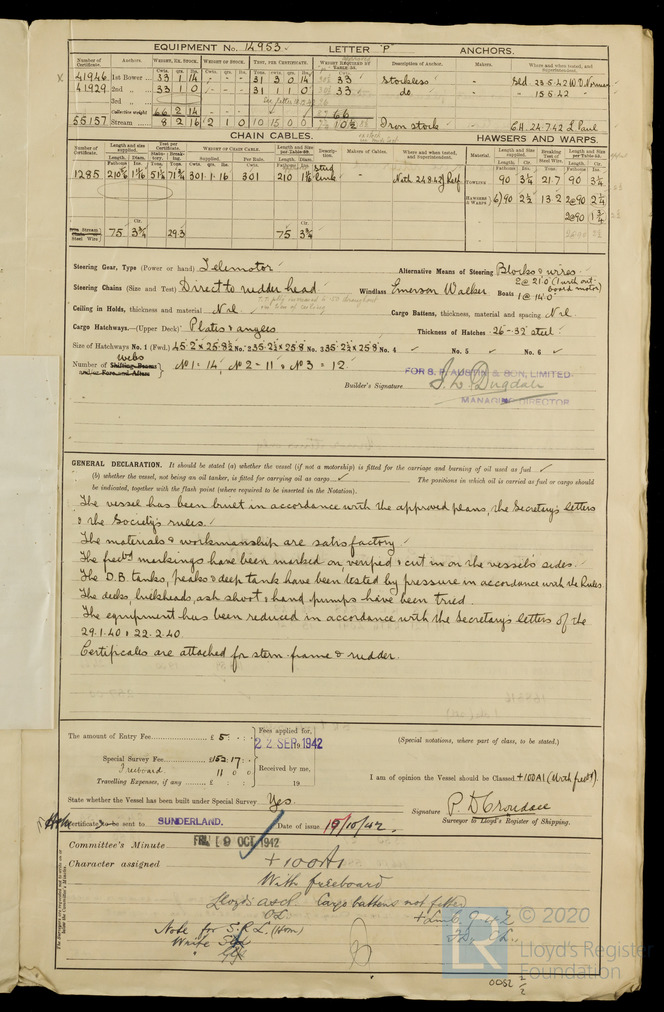 EQUIPMENT No. 14953. LETTER 'P' ANCHORS.
Number of Certificate. Anchors. WEIGHT, EX. STOCK. WEIGHT OF STOCK. TEST, PER CERTIFICATE. WEIGHT REQUIRED BY TABLE 53. Description of Anchor. Makers. Where and when tested, and Superintendent.
Cwts. qrs. lbs. Cwts. qrs. lbs. Tons. cwts. qrs. lbs. Cwts.
41946 1st Bower 33 1 14 - - - 31 3 0 14 33 Stockless - Sld 23.5.42 W.D.Norman
41929 2nd " 33 1 0 - - - 31 1 1 0 33 do. - " 15.5.42 "
3rd "
Collective weight 66 2 14 66
55157 Stream 8 2 16 2 1 0 10 15 0 0 10½ Iron stock C.H. 24.7.42 L. Paul
CHAIN CABLES. HAWSERS AND WARPS.
Number of Certificate. Length and size supplied. Test per Certificate. WEIGHT OF CHAIN CABLE. Length and size per Table 53. Description. Makers of Cables. Where and when tested, and Superintendent. Material. Length and size supplied. Breaking Test of Steel Wire. Length and size per Table 53.
Length. Diam. Statutory. Breaking. Supplied. Per Rule. Length. Diam. Length. Cir. Length. Cir.
1285 301.1.16 301 210 Stud link Neth 24.8.42 TOWLING 90 3¼ 21.7 90 3¼
HAWSERS & WARPS 6)90 2½ 13.2 2@90 2¼
2@90 1¾
Steel Wire 75 3¾ 29.3 75 3¾
Steering Gear, Type (Power or hand) Telemotor Alternative Means of Steering Blocks & wires
Steering Chains (Size and Test) Direct to rudder head Windlass Emerson Walker Boats 2 @ 21'0 (1 with outboard motor) 1 @ 14'0
Ceiling in Holds, thickness and material Nil Cargo Battens, thickness, material and spacing Nil
Cargo Hatchways.—(Upper Deck) Plates & angles Thickness of Hatches 26-32 steel
Size of Hatchways No. 1 (Fwd.) 45.2 × 25.9½ No. 2 35.2½ × 25.8 No. 3 35.2½ × 25.8 No. 4 ✓ No. 5 ✓ No. 6 ✓
Number of webs Shifting Beams and/or Fore and Afters } No 1 - 14, No 2 - 11, No 3 = 12
FOR S. P. AUSTIN & SON, LIMITED
Builder's Signature J. W. Dugdale
MANAGING DIRECTOR
GENERAL DECLARATION. It should be stated (a) whether the vessel (if not a motorship) is fitted for the carriage and burning of oil used as fuel ✓
(b) whether the vessel, not being an oil tanker, is fitted for carrying oil as cargo ✓ The positions in which oil is carried as fuel or cargo should
be indicated, together with the flash point (where required to be inserted in the Notation).
The vessel has been built in accordance with the approved plans, the Secretary's letters
& the Society's rules.
The materials & workmanship are satisfactory
The freebd markings have been marked on verified & cut in on the vessel's sides.
The D.B. tanks, peaks & deep tank have been tested by pressure in accordance with the Rules
The decks, bulkheads, ash shoot & hand pumps have been tried.
The equipment has been reduced in accordance with the Secretary's letters of the
29.1.40 & 22.2.40.
Certificates are attached for stern frame & rudder.
The amount of Entry Fee £ 5 : :
Fees applied for,
22 SEP 1942
(Special notations, where part of class, to be stated.)
Special Survey Fee £152.17.
Freeboard 11 0 0
Received by me,
Travelling Expenses, if any £ : : 19
I am of opinion the Vessel should be Classed +100A1 (With freebd).
State whether the Vessel has been built under Special Survey Yes.
Signature P. D. Crousdace
Surveyor to Lloyd's Register of Shipping.
Certificate to be sent to SUNDERLAND. Date of issue 19/10/42.
Committee's Minute FRI. 9 OCT 1942
Character assigned +100A1
With freeboard
Lloyds A&CP. Cargo battens not fitted
Note for S.R.L. (Hom)
0052 ½
LR
© 2020
Lloyd's Register
Foundation